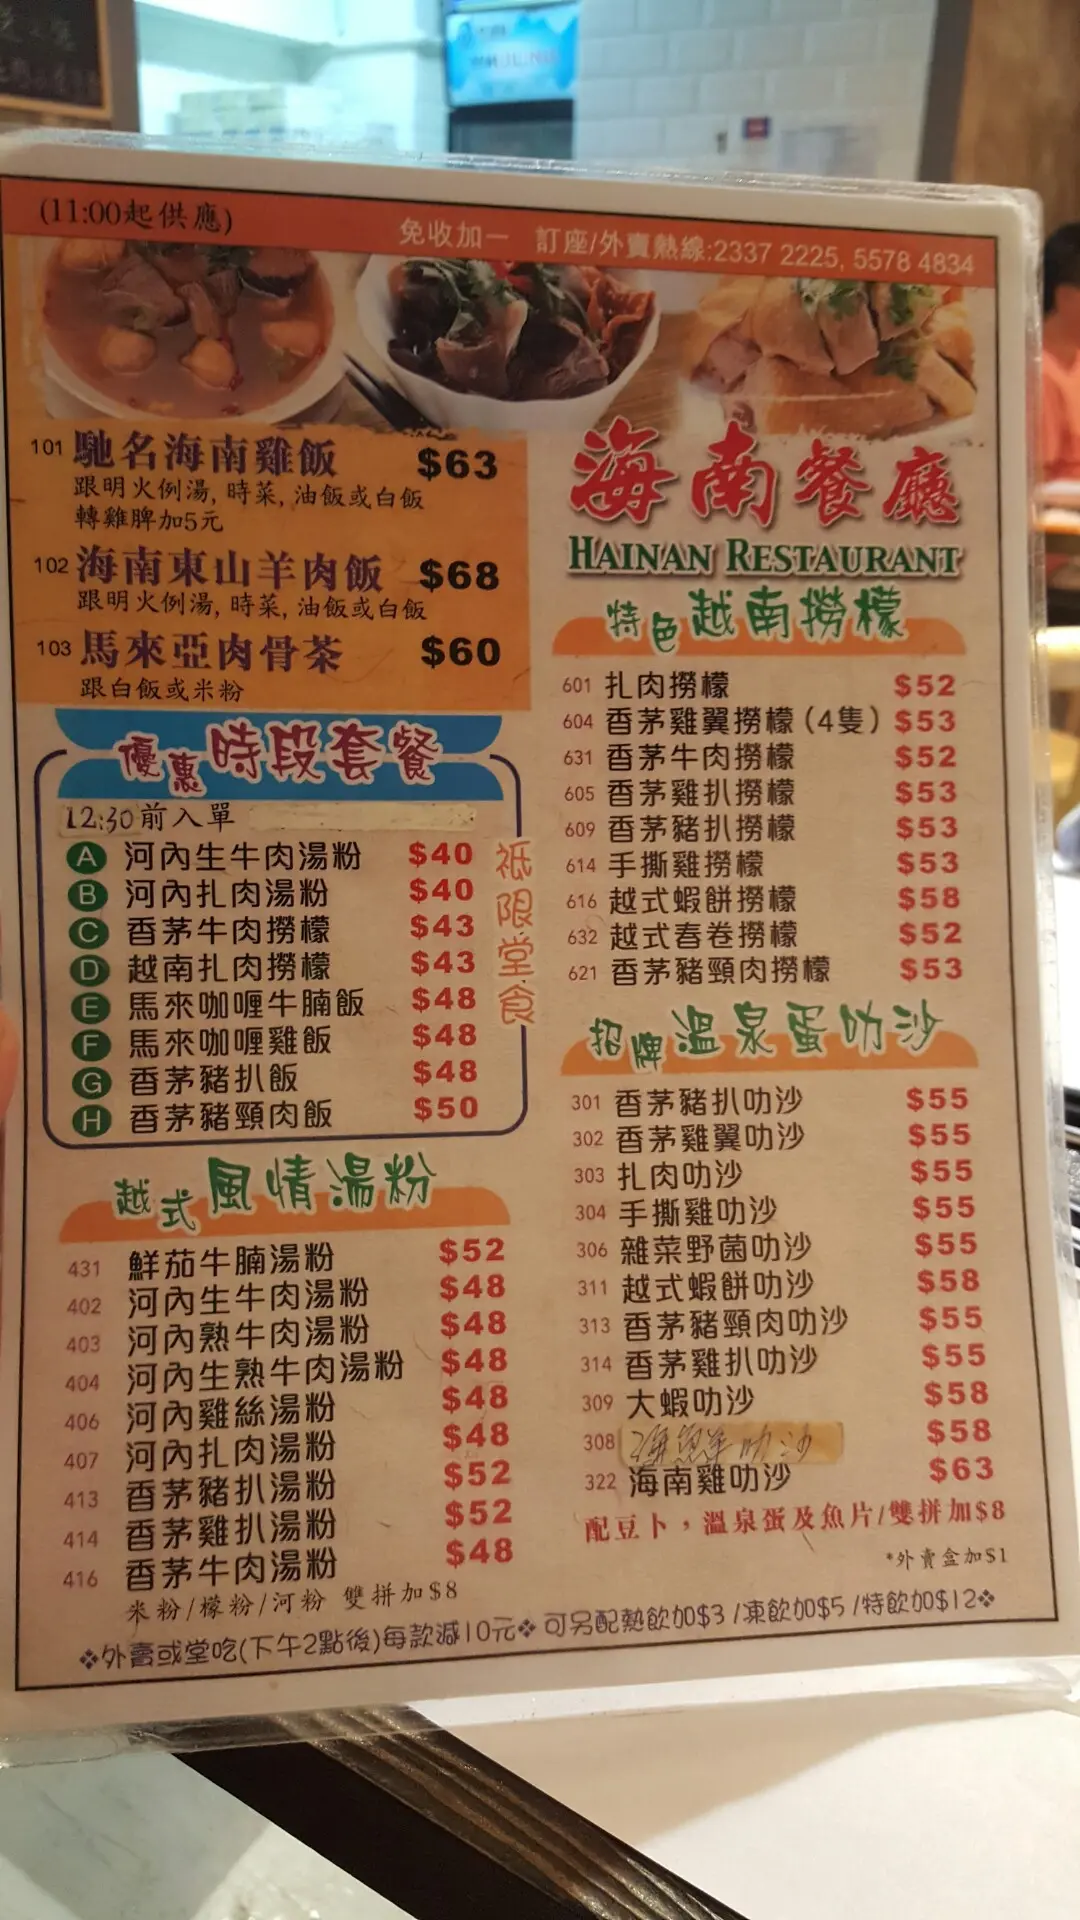 (11:00起供應)
免收加一 訂座/外賣熱線:2337 2225, 5578 4834
101 馳名海南雞飯 $63
跟明火例湯, 時菜, 油飯或白飯
轉雞脾加5元
102 海南東山羊肉飯 $68
跟明火例湯, 時菜, 油飯或白飯
103 馬來亞肉骨茶 $60
跟白飯或米粉
優惠時段套餐
12:30前入單
A 河內生牛肉湯粉 $40
B 河內扎肉湯粉 $40
C 香茅牛肉撈檬 $43
D 越南扎肉撈檬 $43
E 馬來咖喱牛腩飯 $48
F 馬來咖喱雞飯 $48
G 香茅豬扒飯 $48
H 香茅豬頸肉飯 $50
祗限堂食
越式風情湯粉
431 鮮茄牛腩湯粉 $52
402 河內生牛肉湯粉 $48
403 河內熟牛肉湯粉 $48
404 河內生熟牛肉湯粉 $48
406 河內雞絲湯粉 $48
407 河內扎肉湯粉 $48
413 香茅豬扒湯粉 $52
414 香茅雞扒湯粉 $52
416 香茅牛肉湯粉 $48
米粉/檬粉/河粉 雙拼加$8
海南餐廳
HAINAN RESTAURANT
特色越南撈檬
601 扎肉撈檬 $52
604 香茅雞翼撈檬(4隻) $53
631 香茅牛肉撈檬 $52
605 香茅雞扒撈檬 $53
609 香茅豬扒撈檬 $53
614 手撕雞撈檬 $53
616 越式蝦餅撈檬 $58
632 越式春卷撈檬 $52
621 香茅豬頸肉撈檬 $53
招牌溫泉蛋叻沙
301 香茅豬扒叻沙 $55
302 香茅雞翼叻沙 $55
303 扎肉叻沙 $55
304 手撕雞叻沙 $55
306 雜菜野菌叻沙 $55
311 越式蝦餅叻沙 $58
313 香茅豬頸肉叻沙 $55
314 香茅雞扒叻沙 $55
309 大蝦叻沙 $58
308 海鮮叻沙 $58
322 海南雞叻沙 $63
配豆卜，溫泉蛋及魚片/雙拼加$8
*外賣盒加$1
❖外賣或堂吃(下午2點後)每款減10元❖ 可另配熱飲加$3 /凍飲加$5 /特飲加$12❖